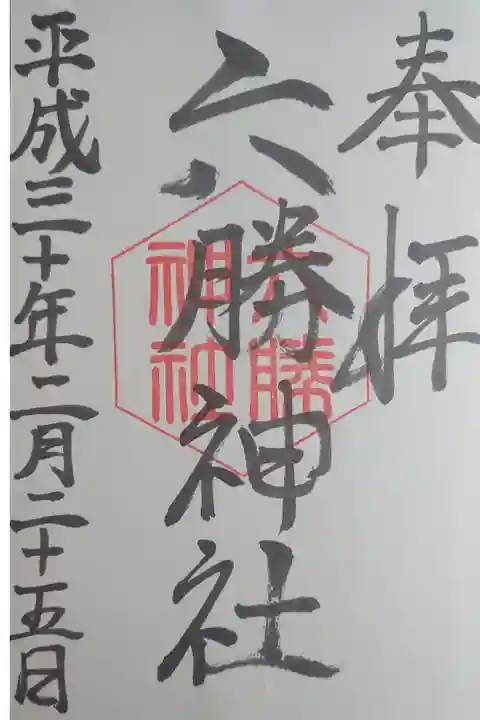 奉拝
六勝神社
六勝神社
平成三十年二月二十五日